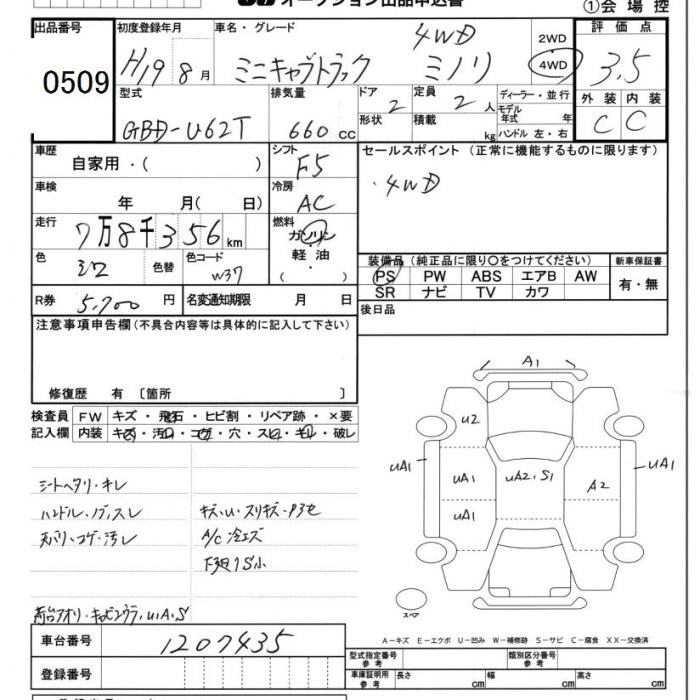 オークション出品申込書
①会場控
出品番号
0509
初度登録年月
H19 8月
車名・グレード
4WD
ミニキャブトラック ミノリ
2WD
4WD
評価点
3.5
型式
GBD-U62T
排気量
660 cc
ドア 2
形状
定員 2人
積載 kg
ディーラー・並行
モデル年式 年
ハンドル 左・右
外装 内装
C C
車歴
自家用・( )
シフト
F5
セールスポイント (正常に機能するものに限ります)
・4WD
車検
年 月( 日)
冷房
AC
走行
7万8千356km
燃料
ガソリン
軽油
・
( )
色
シロ
色替
色コード
W37
装備品 (純正品に限り〇をつけてください)
PS PW ABS エアB AW
SR ナビ TV カワ
新車保証書
有・無
R券 5,700 円
名変通知期限 月 日
後日品
注意事項申告欄 (不具合内容等は具体的に記入して下さい)
修復歴 有 〔箇所 〕
検査員記入欄
FW キズ・飛石・ヒビ割・リペア跡・×要
内装 キズ・汚れ・コゲ・穴・スレ・キレ・破レ
シートヘタリ・キレ
ハンドル・ノブ・スレ
天バリ・コゲ・汚レ
キズ・U・スリキズ・P3セ
A/C冷エズ
下廻りS小
荷台アオリ・キャビンウラ、UA、S
A1
U2
UA1
UA1
UA1
UA2、S1
A2
UA1
スペア
A-キズ E-エクボ U-凹み W-補修跡 S-サビ C-腐食 XX-交換済
車台番号 1207435
登録番号
型式指定番号 参考
類別区分番号 参考
車庫証明用 参考
長さ cm 幅 cm 高さ cm